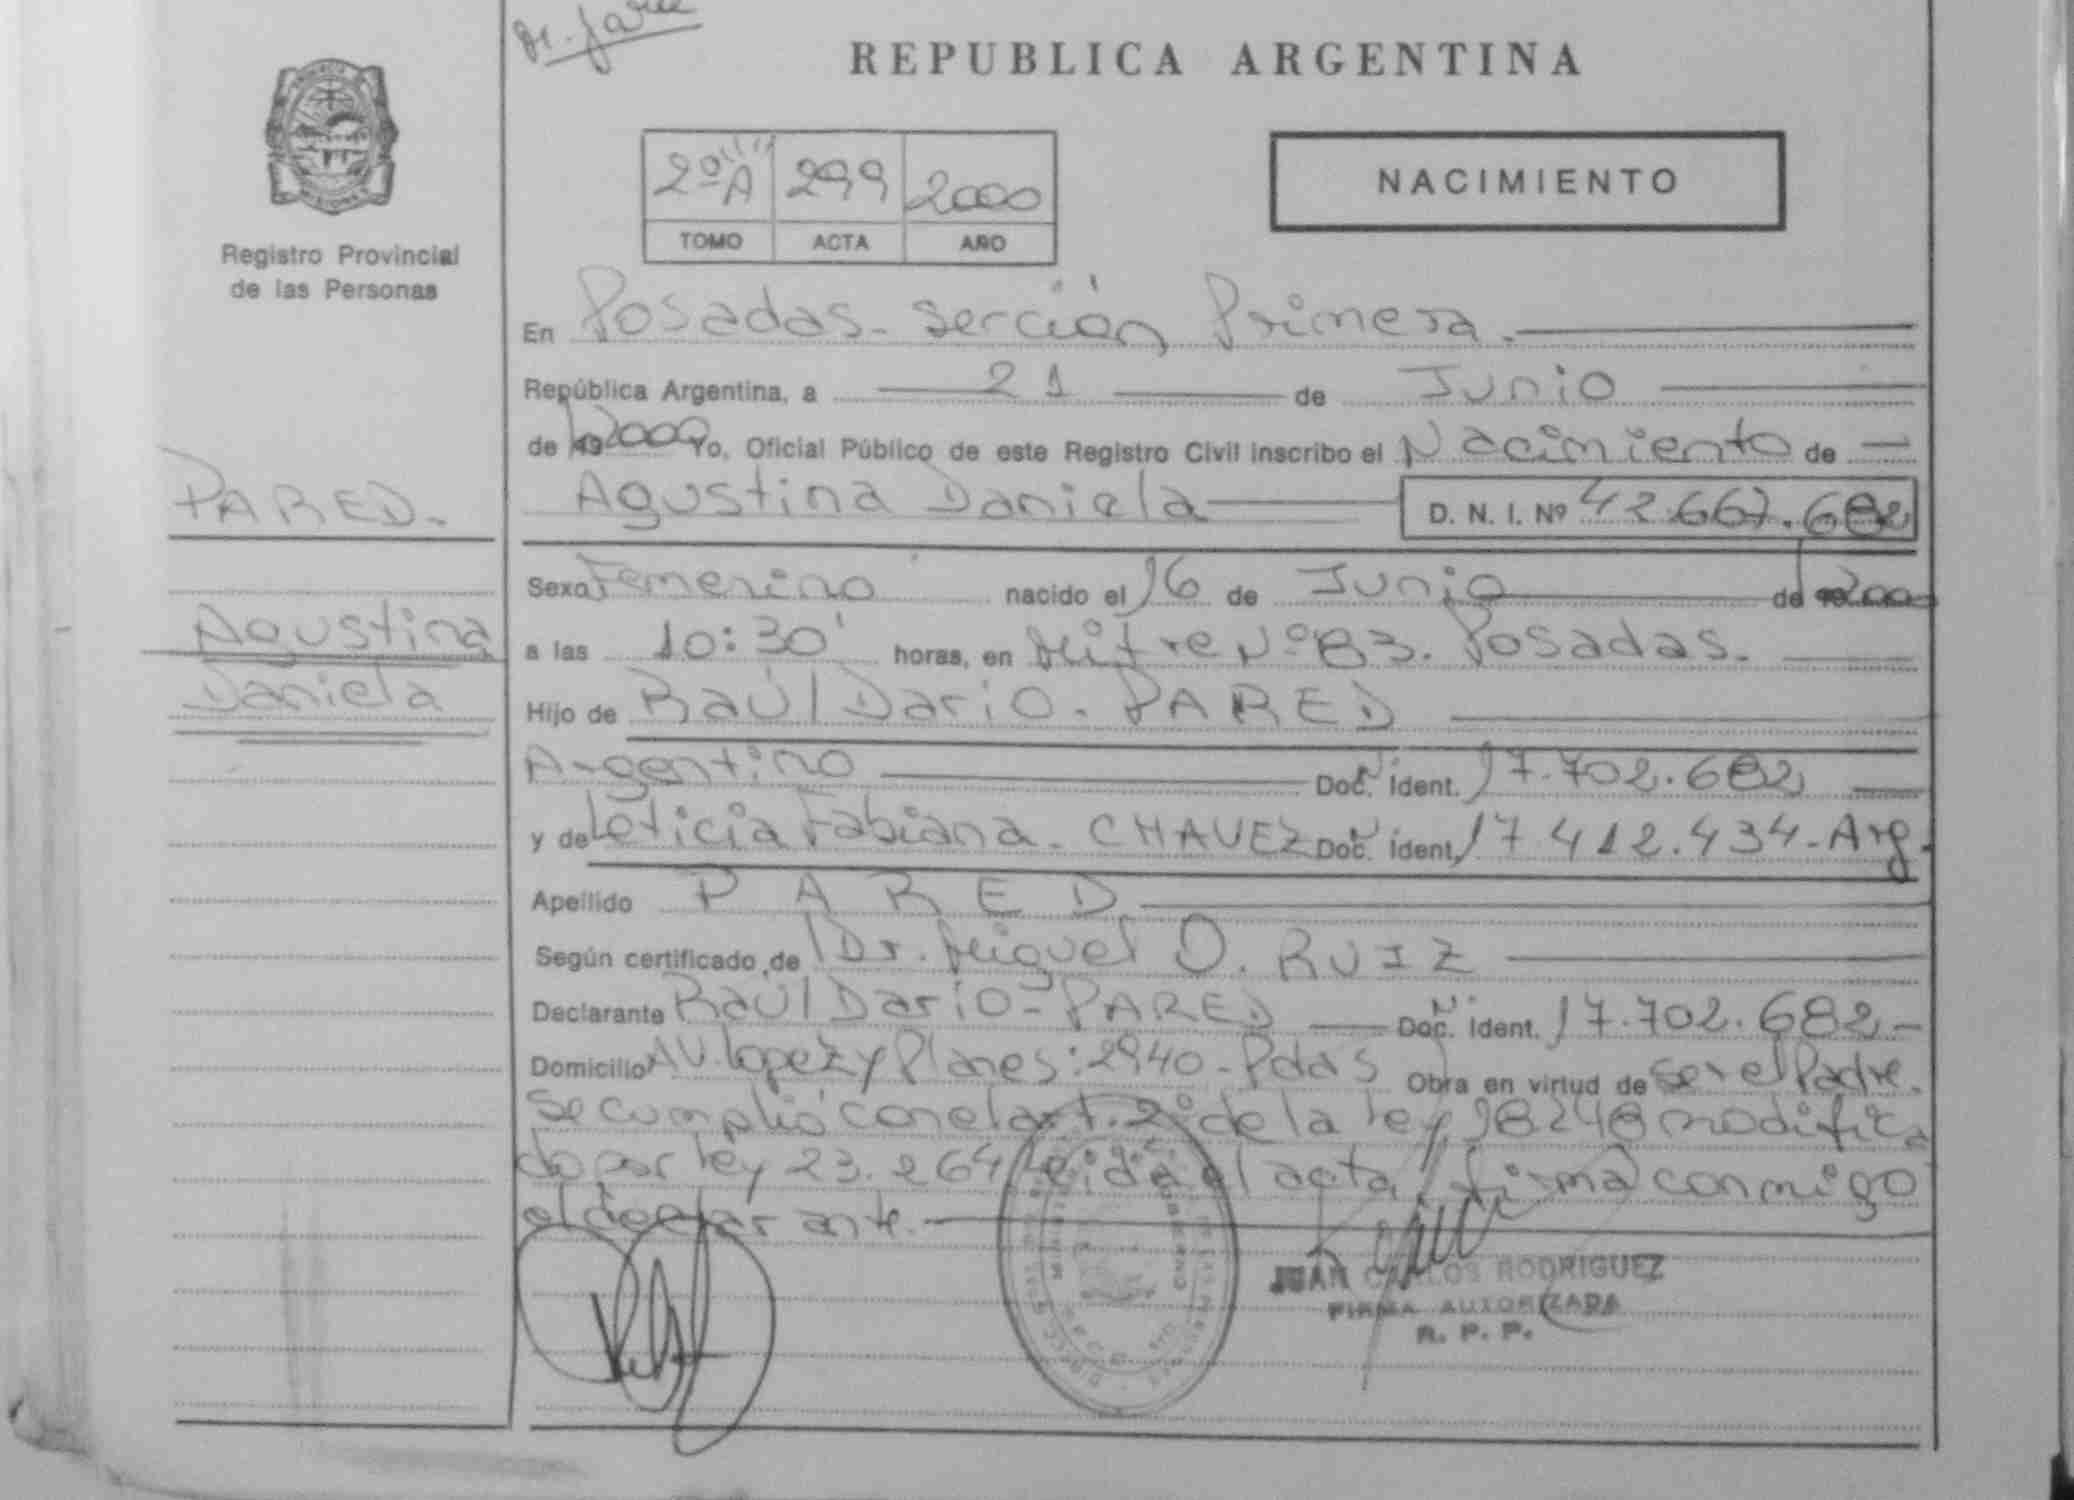 REPUBLICA ARGENTINA
Registro Provincial
de las Personas
2º A 299 2000
TOMO ACTA AÑO
NACIMIENTO
PARED.
Agustina
Daniela
En Posadas - Sección Primera.
República Argentina, a 21 de Junio
de 19 2000 Yo, Oficial Público de este Registro Civil inscribo el Nacimiento de
Agustina Daniela D. N. I. Nº 42.667.682
Sexo Femenino nacido el 16 de Junio de 2000
a las 10:30' horas, en Mitre Nº 83. Posadas.
Hijo de Raúl Dario - PARED
Argentino Doc. Ident. 17.702.682
y de Leticia Fabiana - CHAVEZ Doc. Ident. 17.412.434 - Arg.
Apellido PARED
Según certificado de Dr. Miguel O. RUIZ
Declarante Raúl Dario - PARED Doc. Ident. 17.702.682 -
Domicilio AV. Lopez y Planes: 2940 - Pdas Obra en virtud de ser el Padre.
Se cumplió con el art. 2º de la ley 18248 modifica
do por ley 23.264 Leida el acta, firma conmigo
el declarante.
JUAN CARLOS RODRIGUEZ
FIRMA AUTORIZADA
R. P. P.